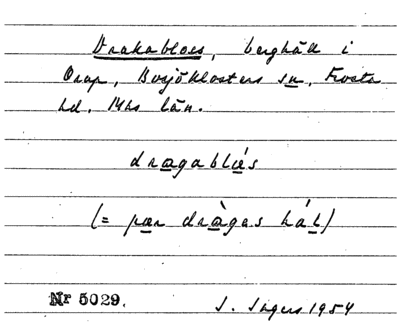 Drakabloes, berghäll i
Orup, Bosjöklosters sn, Frosta
hd, Mhs län.
dragabløs
(= pær dràgas hál)
Nr 5029.
J. Ingers 1954